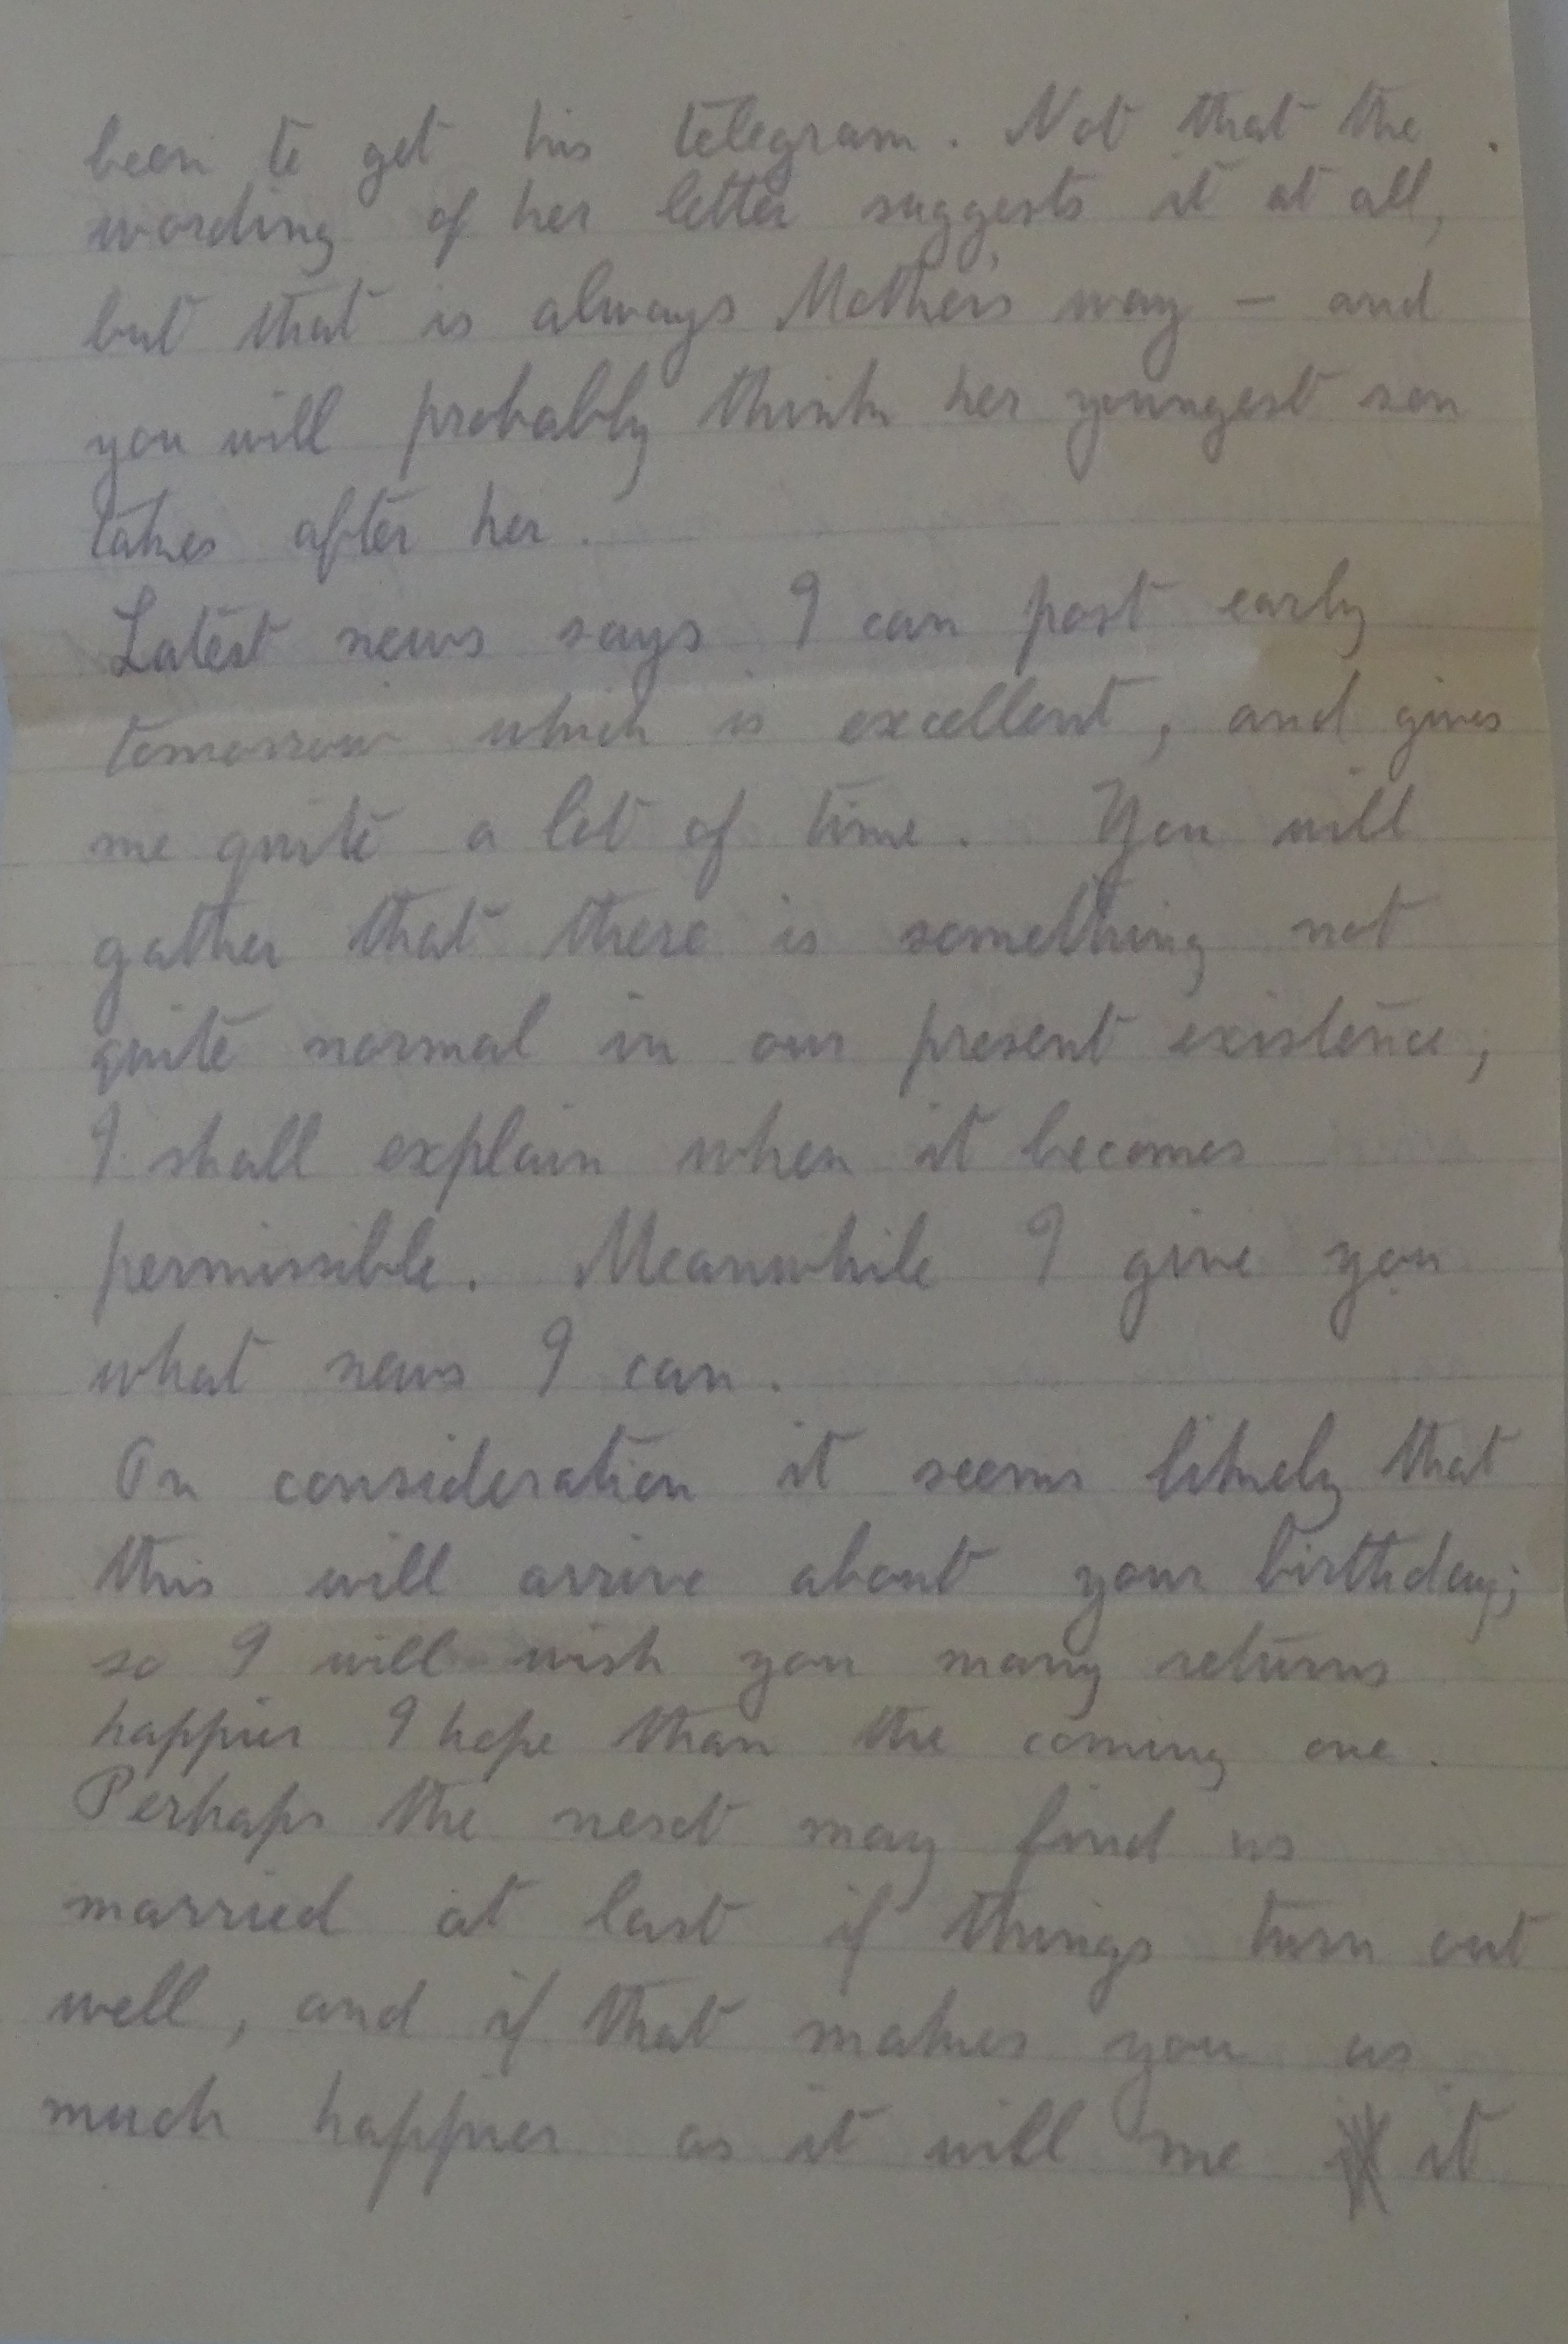 been to get his telegram. Not that the
wording of her letter suggests it at all,
but that is always Mother's way – and
you will probably think her youngest son
takes after her.
Latest news says I can post early
tomorrow which is excellent, and gives
me quite a lot of time. You will
gather that there is something not
quite normal in our present existence,
I shall explain when it becomes
permissible. Meanwhile I give you
what news I can.
On consideration it seems likely that
this will arrive about your birthday;
so I will wish you many returns
happier I hope than the coming one.
Perhaps the next may find us
married at last if things turn out
well, and if that makes you as
much happier as it will me it